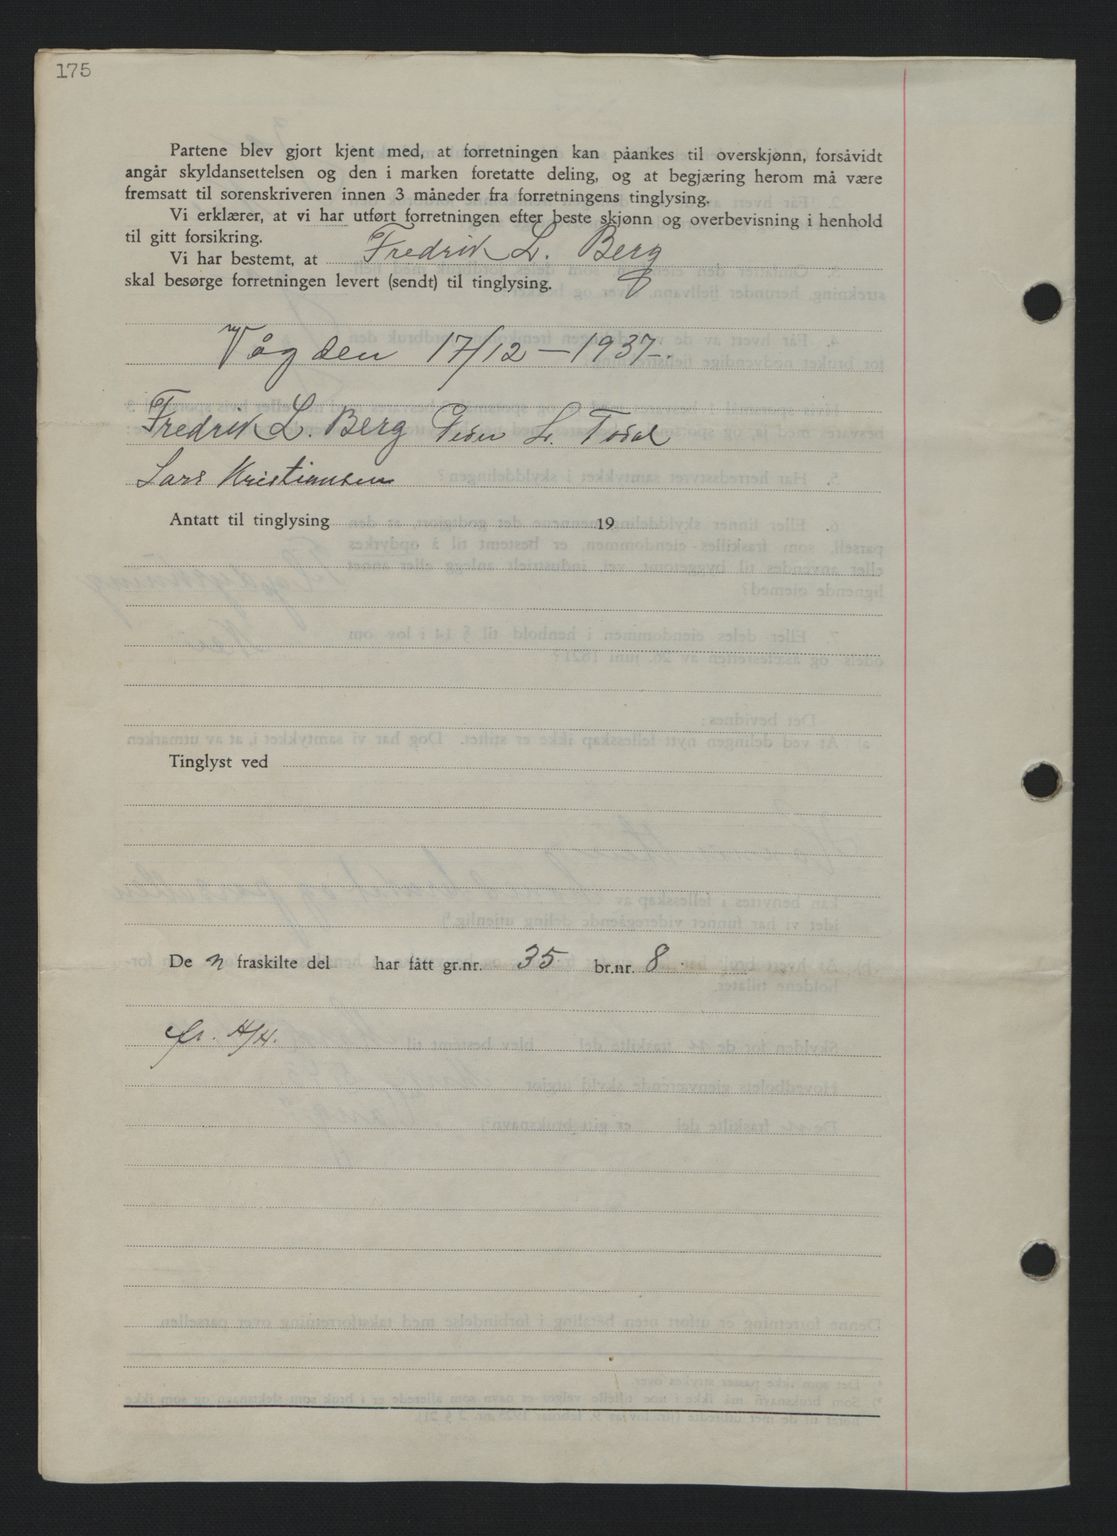 175
Partene blev gjort kjent med, at forretningen kan påankes til overskjønn, forsåvidt
angår skyldansettelsen og den i marken foretatte deling, og at begjæring herom må være
fremsatt til sorenskriveren innen 3 måneder fra forretningens tinglysing.
Vi erklærer, at vi har utført forretningen efter beste skjønn og overbevisning i henhold
til gitt forsikring.
Vi har bestemt, at Fredrik L. Berg
skal besørge forretningen levert (sendt) til tinglysing.
Våg den 17/12 - 1937.
Fredrik L. Berg Peder L. Todal
Lars Kristiansen
Antatt til tinglysing 19
Tinglyst ved
De n fraskilte del har fått gr.nr. 35 br.nr. 8.
fr. H/H.